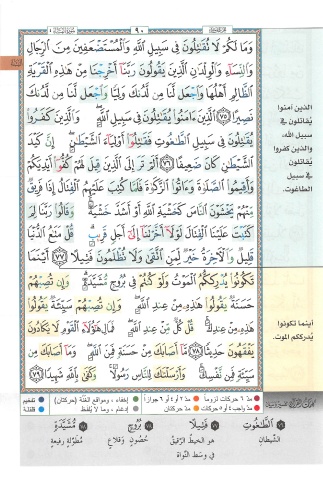 ٩٠
وَمَا لَكُمْ لَا تُقَٰتِلُونَ فِى سَبِيلِ ٱللَّهِ وَٱلْمُسْتَضْعَفِينَ مِنَ ٱلرِّجَالِ
وَٱلنِّسَآءِ وَٱلْوِلْدَٰنِ ٱلَّذِينَ يَقُولُونَ رَبَّنَآ أَخْرِجْنَا مِنْ هَٰذِهِ ٱلْقَرْيَةِ
ٱلظَّالِمِ أَهْلُهَا وَٱجْعَل لَّنَا مِن لَّدُنكَ وَلِيًّا وَٱجْعَل لَّنَا مِن لَّدُنكَ
نَصِيرًا ٧٥ ٱلَّذِينَ ءَامَنُوا۟ يُقَٰتِلُونَ فِى سَبِيلِ ٱللَّهِ وَٱلَّذِينَ كَفَرُوا۟
يُقَٰتِلُونَ فِى سَبِيلِ ٱلطَّٰغُوتِ فَقَٰتِلُوٓا۟ أَوْلِيَآءَ ٱلشَّيْطَٰنِ إِنَّ كَيْدَ
ٱلشَّيْطَٰنِ كَانَ ضَعِيفًا ٧٦ أَلَمْ تَرَ إِلَى ٱلَّذِينَ قِيلَ لَهُمْ كُفُّوٓا۟ أَيْدِيَكُمْ
وَأَقِيمُوا۟ ٱلصَّلَوٰةَ وَءَاتُوا۟ ٱلزَّكَوٰةَ فَلَمَّا كُتِبَ عَلَيْهِمُ ٱلْقِتَالُ إِذَا فَرِيقٌ
مِّنْهُمْ يَخْشَوْنَ ٱلنَّاسَ كَخَشْيَةِ ٱللَّهِ أَوْ أَشَدَّ خَشْيَةً وَقَالُوا۟ رَبَّنَا لِمَ
كَتَبْتَ عَلَيْنَا ٱلْقِتَالَ لَوْلَآ أَخَّرْتَنَآ إِلَىٰٓ أَجَلٍ قَرِيبٍ قُلْ مَتَٰعُ ٱلدُّنْيَا
قَلِيلٌ وَٱلْـَٔاخِرَةُ خَيْرٌ لِّمَنِ ٱتَّقَىٰ وَلَا تُظْلَمُونَ فَتِيلًا ٧٧ أَيْنَمَا
تَكُونُوا۟ يُدْرِككُّمُ ٱلْمَوْتُ وَلَوْ كُنتُمْ فِى بُرُوجٍ مُّشَيَّدَةٍ وَإِن تُصِبْهُمْ
حَسَنَةٌ يَقُولُوا۟ هَٰذِهِۦ مِنْ عِندِ ٱللَّهِ وَإِن تُصِبْهُمْ سَيِّئَةٌ يَقُولُوا۟
هَٰذِهِۦ مِنْ عِندِكَ قُلْ كُلٌّ مِّنْ عِندِ ٱللَّهِ فَمَالِ هَٰٓؤُلَآءِ ٱلْقَوْمِ لَا يَكَادُونَ
يَفْقَهُونَ حَدِيثًا ٧٨ مَّآ أَصَابَكَ مِنْ حَسَنَةٍ فَمِنَ ٱللَّهِ وَمَآ أَصَابَكَ مِن
سَيِّئَةٍ فَمِن نَّفْسِكَ وَأَرْسَلْنَٰكَ لِلنَّاسِ رَسُولًا وَكَفَىٰ بِٱللَّهِ شَهِيدًا ٧٩
الذين آمنوا
يقاتلون في
سبيل الله،
والذين كفروا
يقاتلون
في سبيل
الطاغوت.
أينما تكونوا
يدرككم الموت.
مدّ ٦ حركات لزوماً مدّ ٢ أو ٤ أو ٦ جوازاً إخفاء، ومواقع الغُنَّة (حركتان) تفخيم
مدّ واجب ٤ أو ٥ حركات مدّ حركتان إدغام، وما لا يُلفَظ قلقلة
ٱلطَّٰغُوتِ
الشيطان
فَتِيلًا
هو الخيطُ الرقيقُ
في وسَط النَّواة
بُرُوجٍ
حُصونٍ وقلاعٍ
مُّشَيَّدَةٍ
مُطوَّلةٍ رفيعةٍ